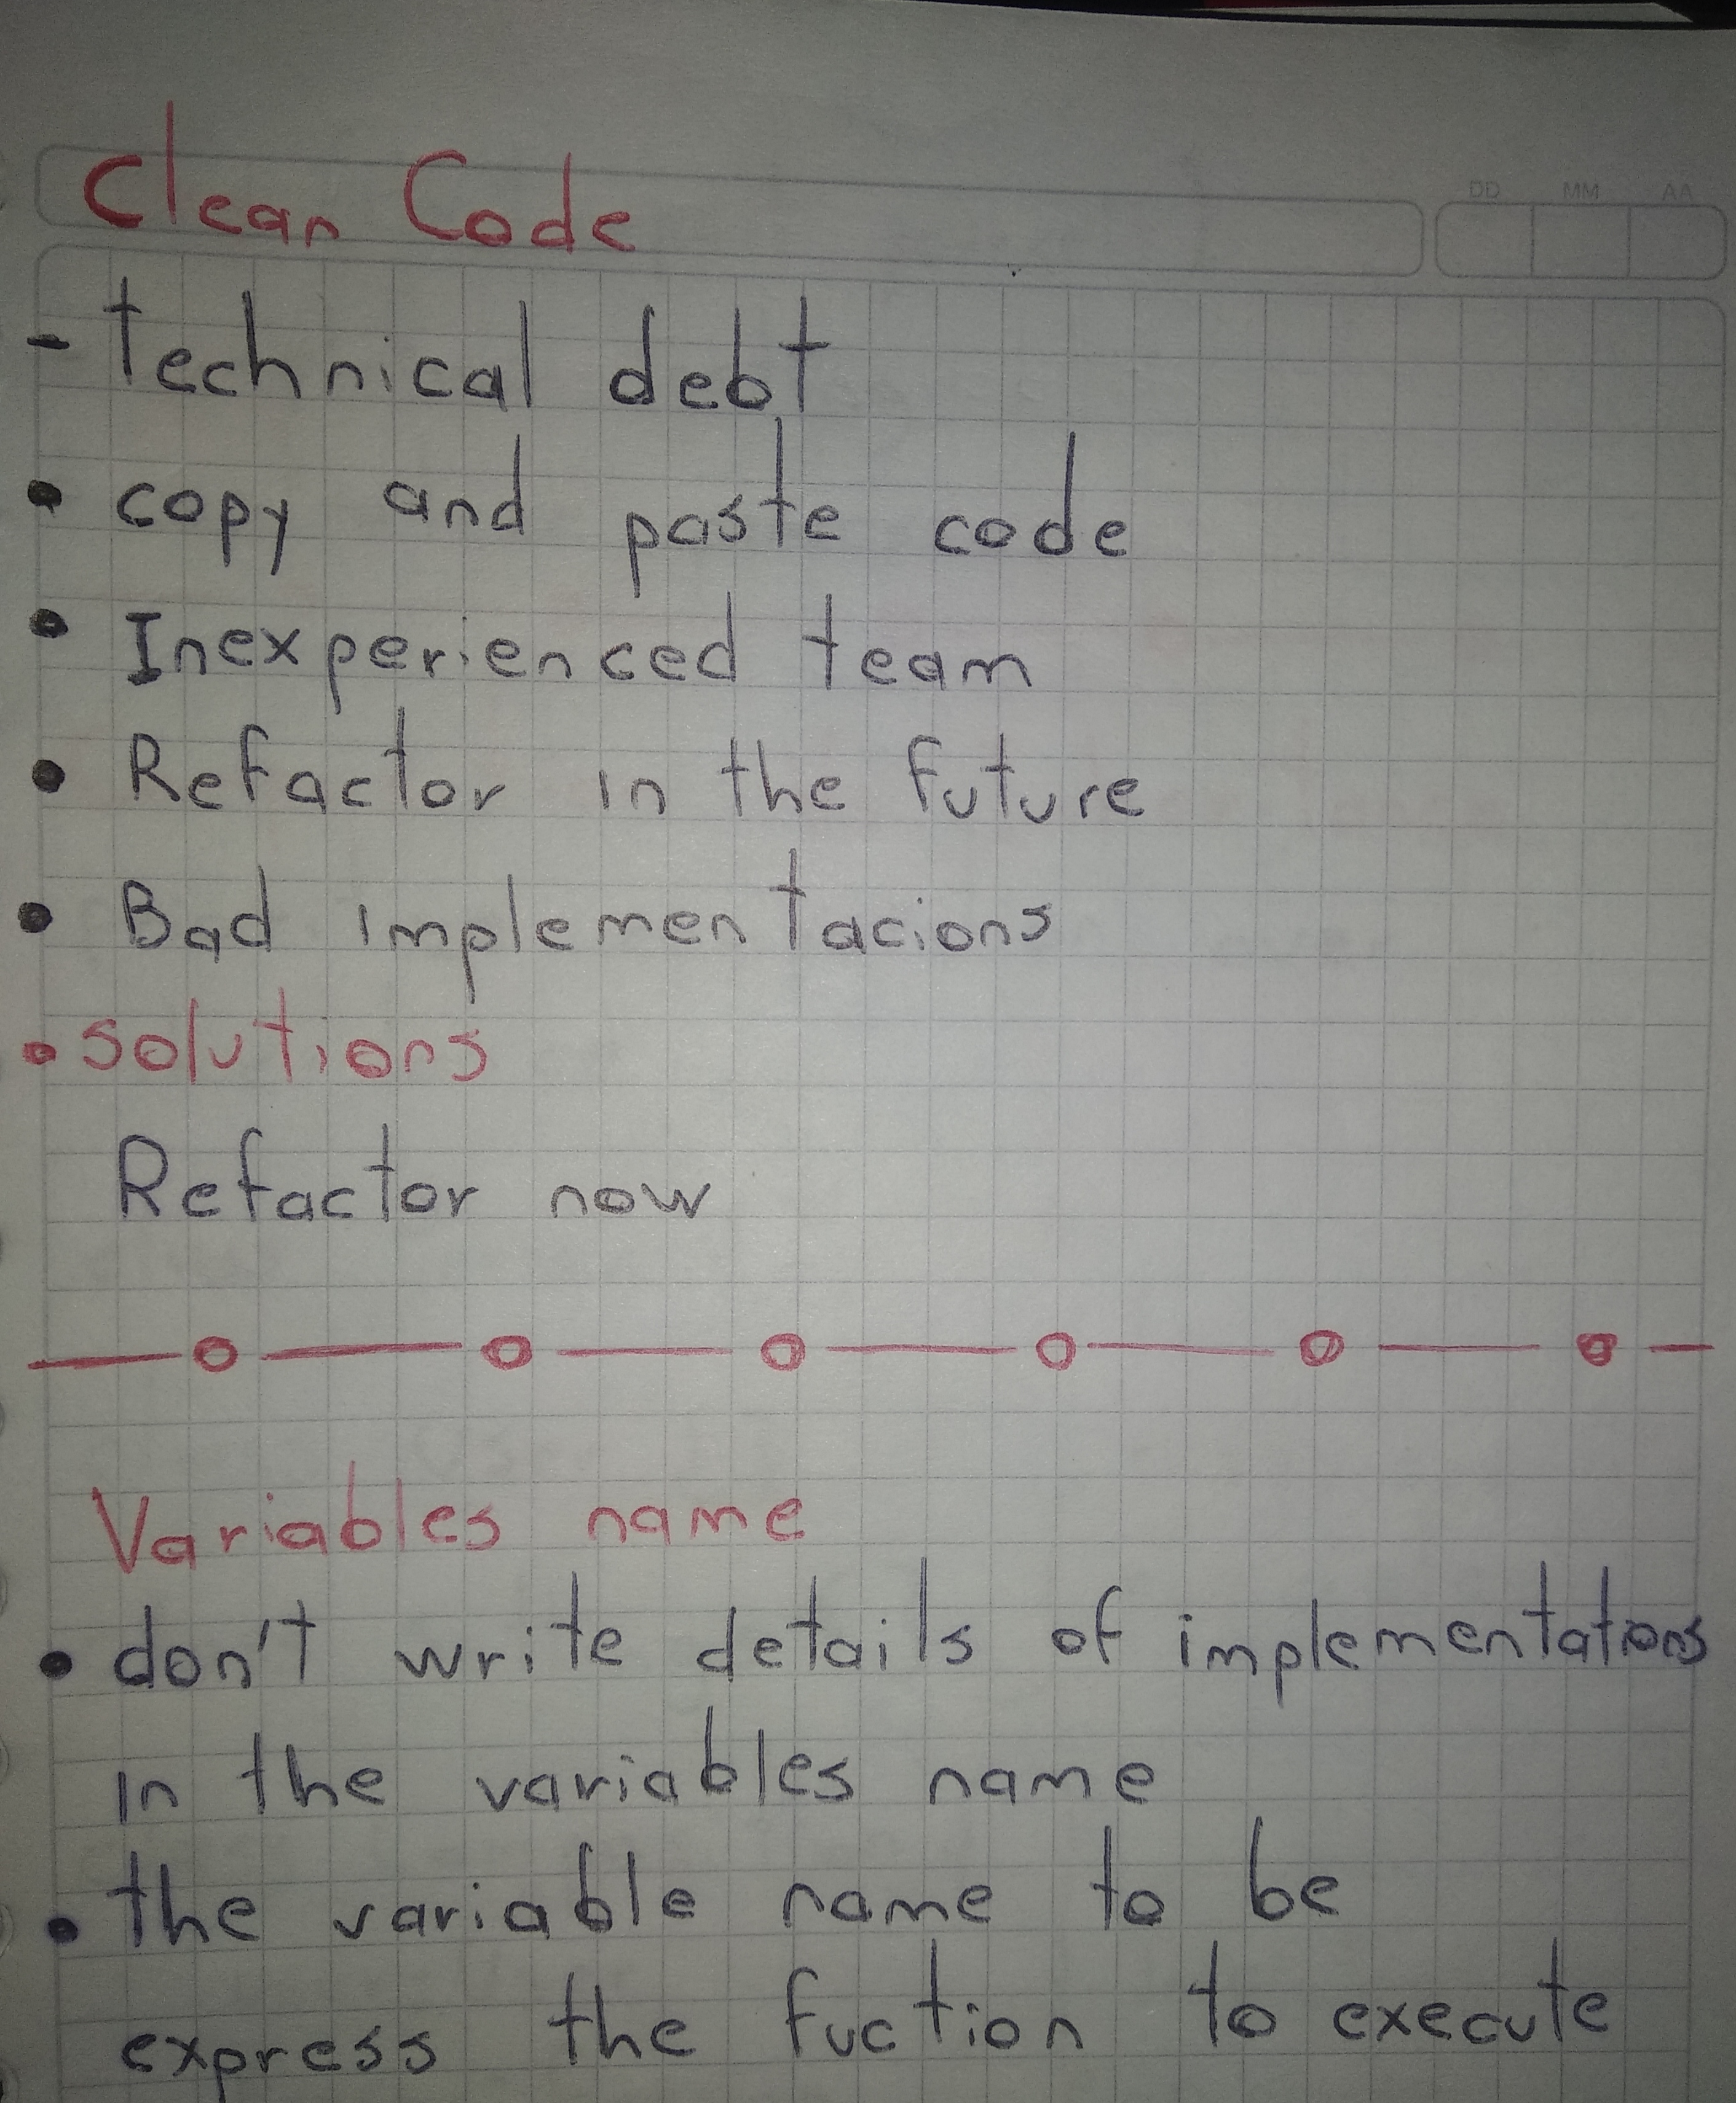 Clean Code
DD MM AA
- Technical debt
• copy and paste code
• Inexperienced team
• Refactor in the future
• Bad implementacions
• solutions
Refactor now
Variables name
• don't write details of implementations
in the variables name
• the variable name to be
express the fuction to execute